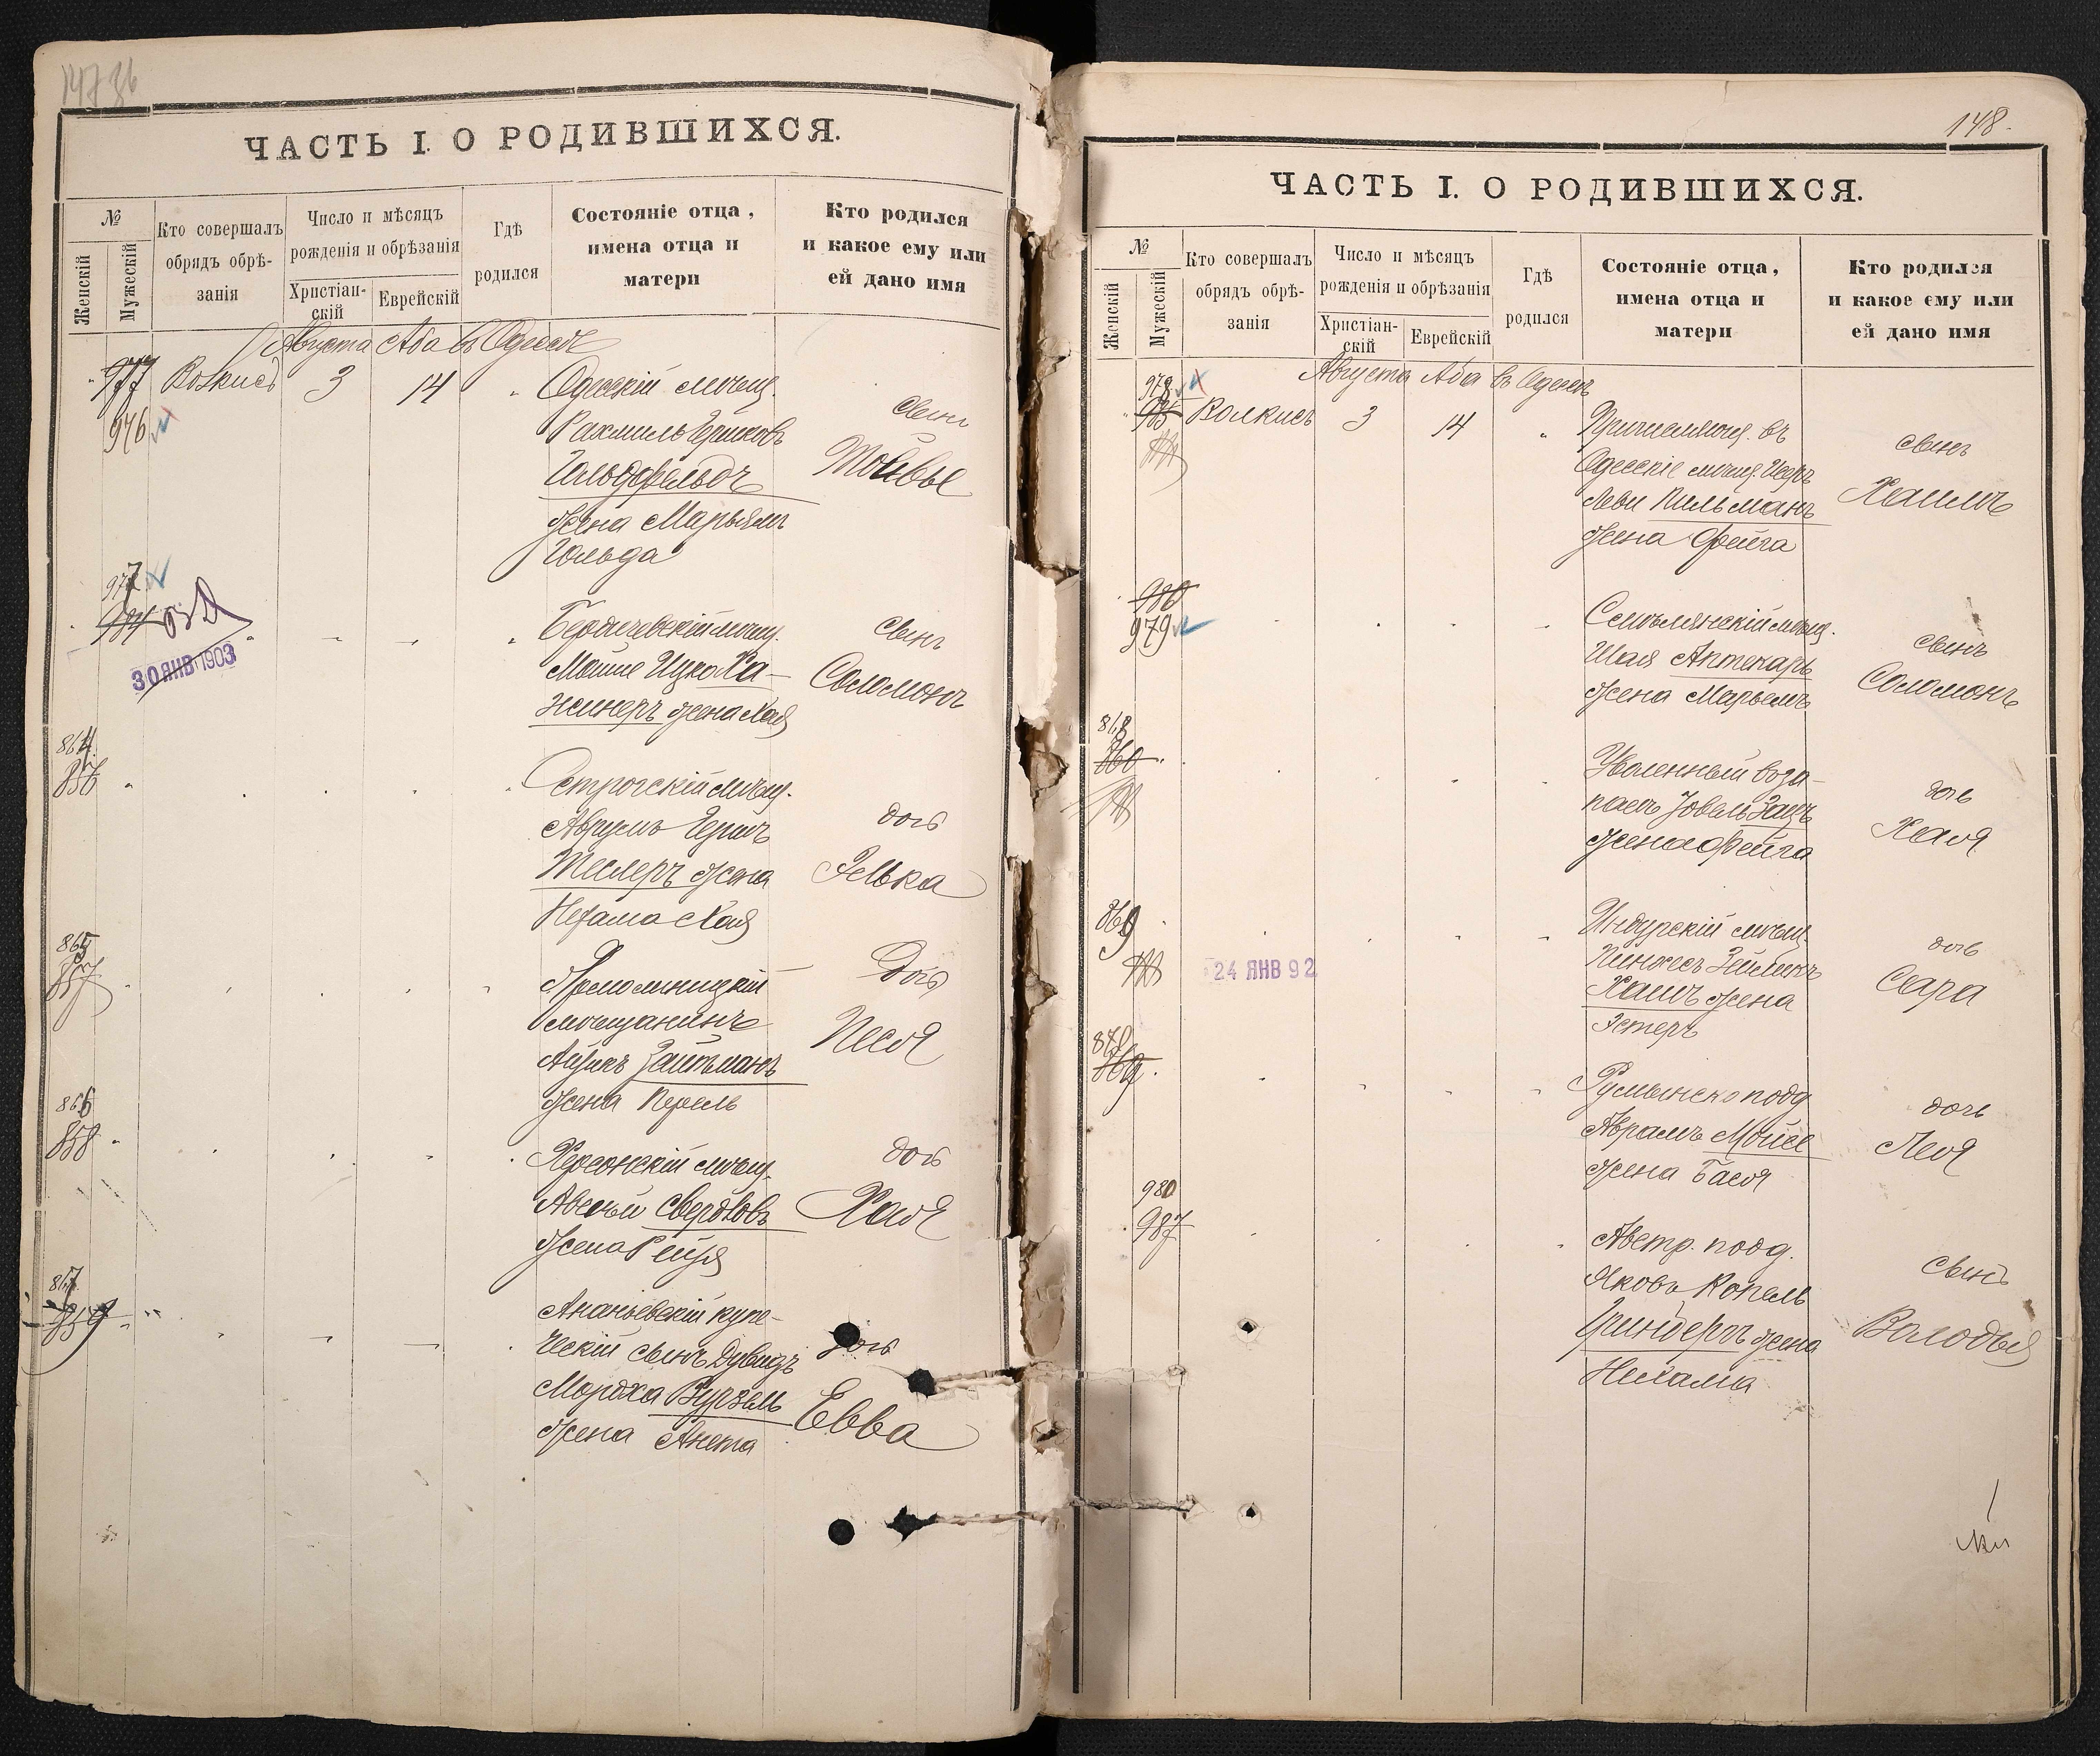 ЧАСТЬ I. О РОДИВШИХСЯ.
№
Женскій
Мужескій
Кто совершалъ
обрядъ обрѣ-
занія
Число и мѣсяцъ
рожденія и обрѣзанія
Христіан-
скій
Еврейскій
Гдѣ
родился
Состояніе отца,
имена отца и
матери
Кто родился
и какое ему или
ей дано имя
Августа Аба въ Одессѣ
977 Волкисъ 3 14 Одесскій мѣщ.
976
Рахмиль Гершковъ
Гольдфельдъ
жена Марьямъ
Гольда
сынъ
Товбе
977
984
30 ЯНВ 1903
Бердичевскій мѣщ.
Мойше Ицко Ка-
жнеръ жена Хая
сынъ
Соломонъ
864
856
Острогскій мѣщ.
Аврумъ Гершъ
Теслеръ жена
Нехама Хая
дочь
Элька
865
857
Ярмолинецкій
мѣщанинъ
Айзикъ Зайтманъ
жена Перель
дочь
Песя
866
858
Херсонскій мѣщ.
Авсѣй Свердловъ
жена Рейзя
дочь
Хася
867
859
Ананьевскій купе-
ческій сынъ Дувидъ
Мордха Вурзель
жена Анета
дочь
Евва
148.
ЧАСТЬ I. О РОДИВШИХСЯ.
№
Женскій
Мужескій
Кто совершалъ
обрядъ обрѣ-
занія
Число и мѣсяцъ
рожденія и обрѣзанія
Христіан-
скій
Еврейскій
Гдѣ
родился
Состояніе отца,
имена отца и
матери
Кто родился
и какое ему или
ей дано имя
Августа Аба въ Одессѣ
978
985 Волкисъ 3 14 Причисляющ. въ
Одесскіе мѣщ.
Леви Кильманъ
жена Фейга
сынъ
Хаимъ
986
979
мѣщ.
Шая Аптекарь
жена Марьемъ
сынъ
Соломонъ
868
860
Уволенный въ за-
пасъ Іовель Зацъ
жена Фейга
дочь
Хая
869
24 ЯНВ 92
Индурскій мѣщ.
Пинхесъ Зейликъ
Хаимъ жена
Эстеръ
дочь
Сара
870
Румынско подд
Аврамъ Мойсе
жена Бася
дочь
Лея
980
987
Австр. подд.
Яковъ Копель
Гринбергъ жена
Нехама
сынъ
Володья